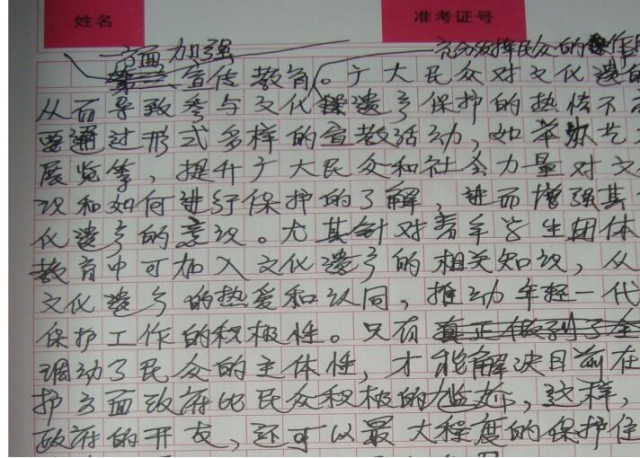 姓名 准考证号
一方面加强 充分发挥民众的作
宣传教育。广大民众对文化遗
从而导致参与文化遗产保护的热情不
要通过形式多样的宣教活动,如举办艺
展览等,提升广大民众和社会力量对文
识和如何进行保护的了解,进而增强其
化遗产的意识。尤其针对青年学生团体
教育中可加入文化遗产的相关知识,从
文化遗产的热爱和认同,推动年轻一代
保护工作的积极性。只有真正做到了全
调动了民众的主体性,才能解决目前在
护方面政府比民众积极的尴尬,这样,
政府的开支,还可以最大程度的保护住